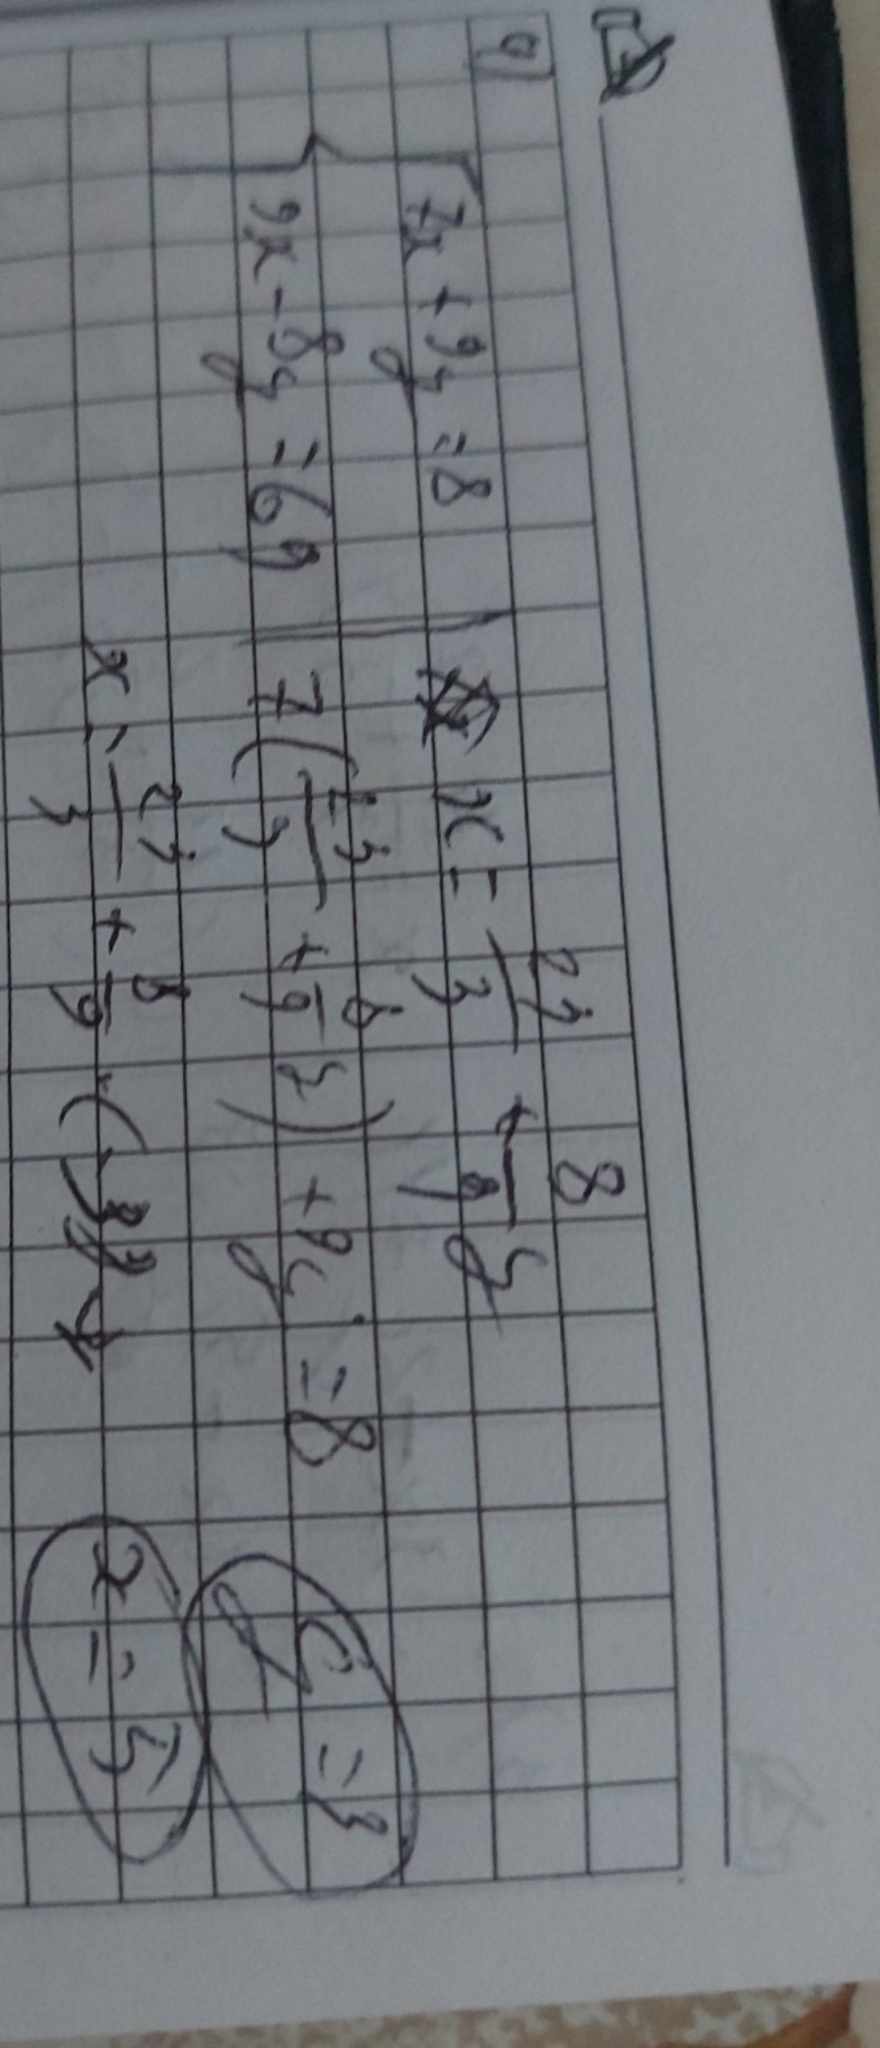 a)
7x + 9y = 8
9x - 8y = 69
x = 23/3 + 8/9 y
7(23/3 + 8/9 y) + 9y = 8
x = 23/3 + 8/9 · (
x = 5